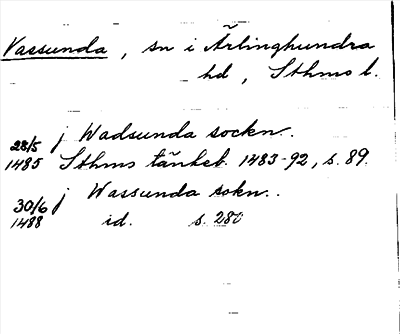 Vassunda, sn i Ärlinghundra
hd, Sthms l.
28/5 j Wadsunda sockn.
1485 Sthms tänkeb. 1483-92, s. 89.
30/6 j Wassunda sokn.
1488 id. s. 280